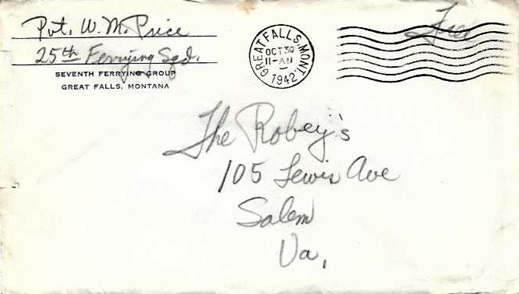 Pvt. W. M. Price
25th Ferrying Sqd.
SEVENTH FERRYING GROUP
GREAT FALLS, MONTANA
GREAT FALLS, MONT.
OCT 30
11-AM
1942
Free
The Robey's
105 Lewis Ave
Salem
Va.